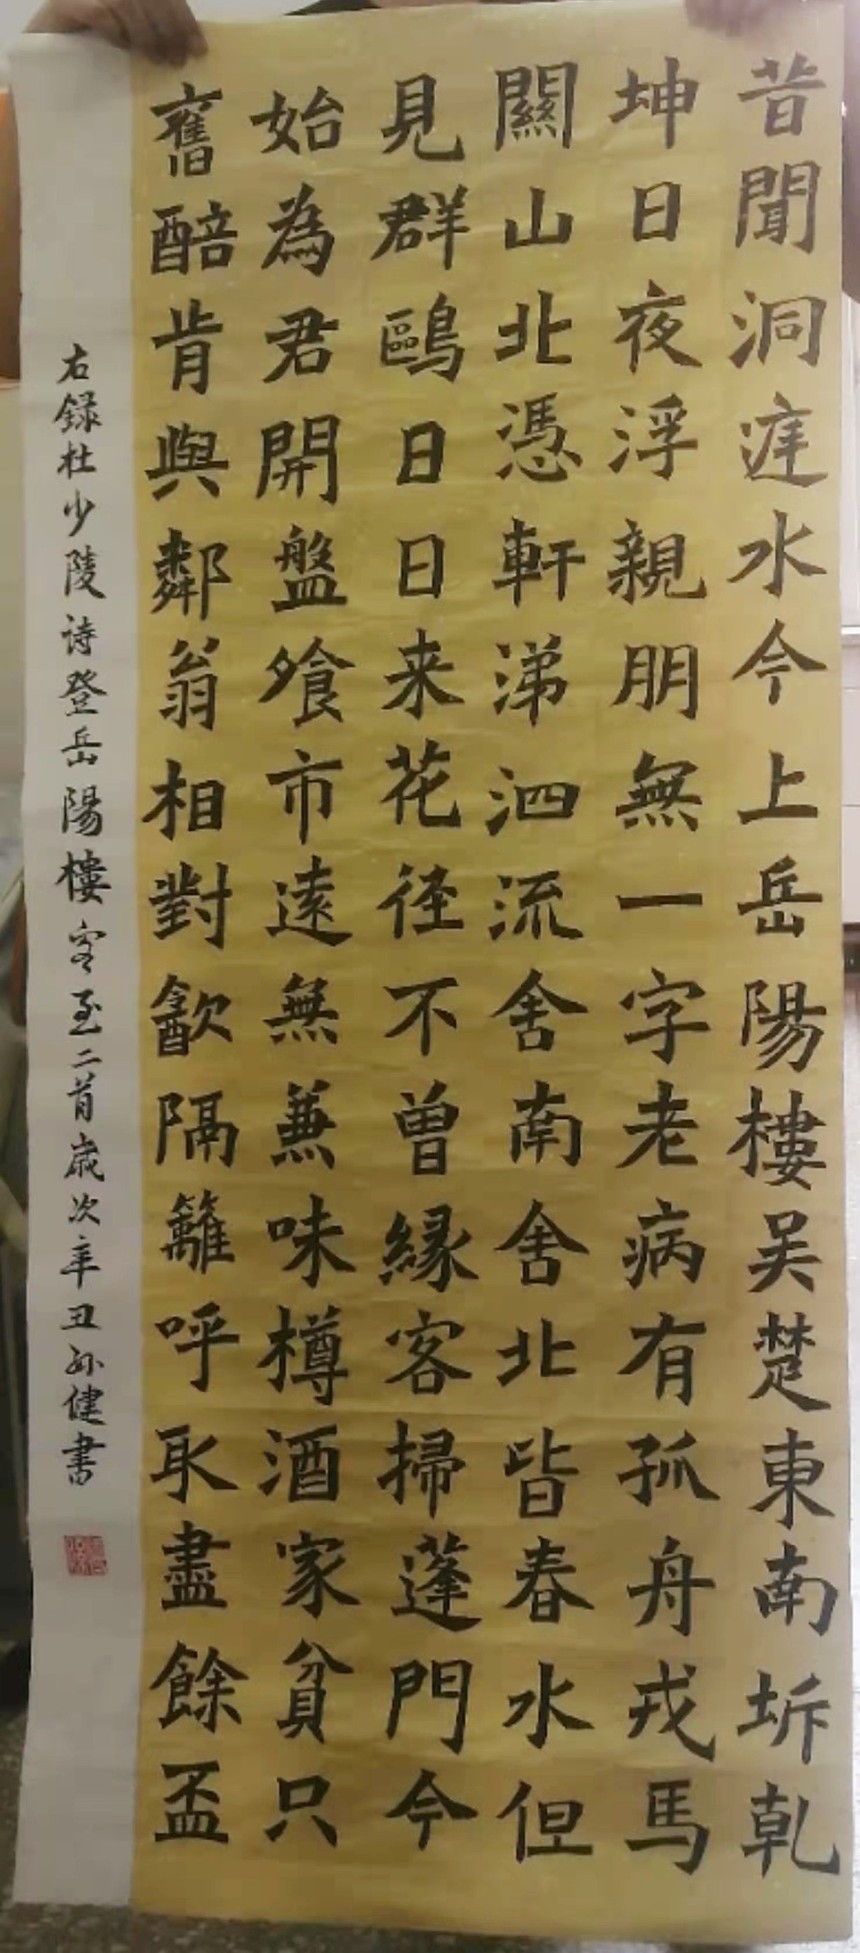 昔聞洞庭水今上岳陽樓吴楚東南坼乾
坤日夜浮親朋無一字老病有孤舟戎馬
關山北憑軒涕泗流舍南舍北皆春水但
見群鷗日日来花径不曾緣客掃蓬門今
始為君開盤飧市遠無兼味樽酒家貧只
舊醅肯與鄰翁相對飲隔籬呼取盡餘盃
右録杜少陵诗登岳陽樓客至二首歲次辛丑孙健書